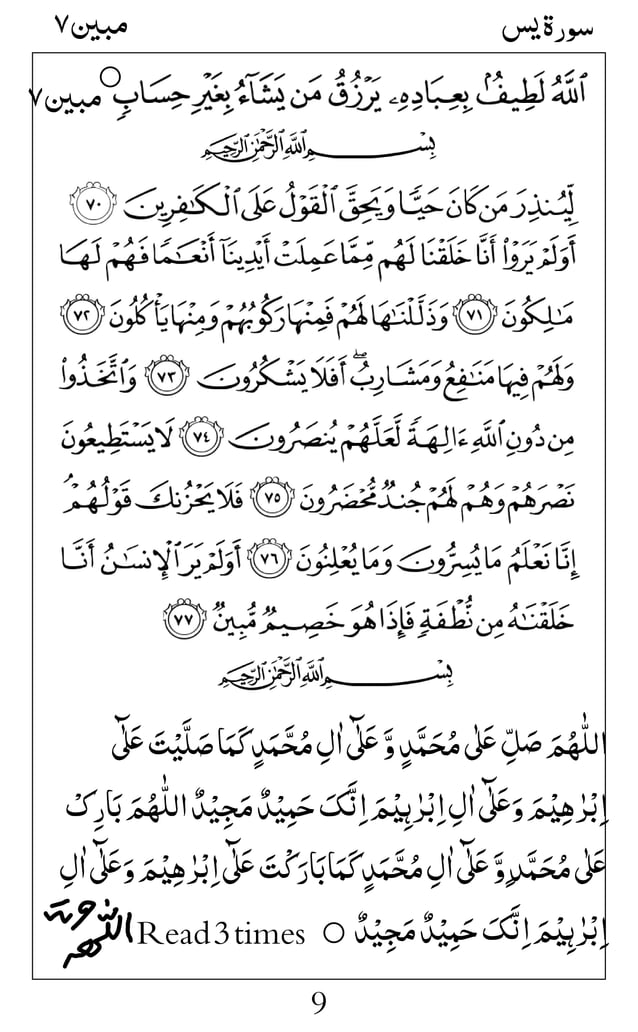 سورة يس مبين٧
ٱللَّهُ لَطِيفُۢ بِعِبَادِهِۦ يَرْزُقُ مَن يَشَآءُ بِغَيْرِ حِسَابٍ ○ مبين٧
بِسْمِ اللَّهِ الرَّحْمَٰنِ الرَّحِيمِ
لِّيُنذِرَ مَن كَانَ حَيًّا وَيَحِقَّ ٱلْقَوْلُ عَلَى ٱلْكَـٰفِرِينَ ٧٠
أَوَلَمْ يَرَوْا۟ أَنَّا خَلَقْنَا لَهُم مِّمَّا عَمِلَتْ أَيْدِينَآ أَنْعَـٰمًا فَهُمْ لَهَا
مَـٰلِكُونَ ٧١ وَذَلَّلْنَـٰهَا لَهُمْ فَمِنْهَا رَكُوبُهُمْ وَمِنْهَا يَأْكُلُونَ ٧٢
وَلَهُمْ فِيهَا مَنَـٰفِعُ وَمَشَارِبُ ۖ أَفَلَا يَشْكُرُونَ ٧٣ وَٱتَّخَذُوا۟
مِن دُونِ ٱللَّهِ ءَالِهَةً لَّعَلَّهُمْ يُنصَرُونَ ٧٤ لَا يَسْتَطِيعُونَ
نَصْرَهُمْ وَهُمْ لَهُمْ جُندٌ مُّحْضَرُونَ ٧٥ فَلَا يَحْزُنكَ قَوْلُهُمْ ۘ
إِنَّا نَعْلَمُ مَا يُسِرُّونَ وَمَا يُعْلِنُونَ ٧٦ أَوَلَمْ يَرَ ٱلْإِنسَـٰنُ أَنَّا
خَلَقْنَـٰهُ مِن نُّطْفَةٍ فَإِذَا هُوَ خَصِيمٌ مُّبِينٌ ٧٧
بِسْمِ اللَّهِ الرَّحْمَٰنِ الرَّحِيمِ
اَللّٰهُمَّ صَلِّ عَلٰى مُحَمَّدٍ وَّ عَلٰٓى اٰلِ مُحَمَّدٍ كَمَا صَلَّيْتَ عَلٰٓى
اِبْرٰهِيْمَ وَعَلٰٓى اٰلِ اِبْرٰهِيْمَ اِنَّكَ حَمِيْدٌ مَّجِيْدٌ اَللّٰهُمَّ بَارِكْ
عَلٰى مُحَمَّدٍ وَّ عَلٰٓى اٰلِ مُحَمَّدٍ كَمَا بَارَكْتَ عَلٰٓى اِبْرٰهِيْمَ وَعَلٰٓى اٰلِ
اِبْرٰهِيْمَ اِنَّكَ حَمِيْدٌ مَّجِيْدٌ ○ Read 3 times
9